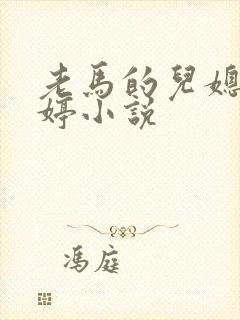 老馬的兒媳
婷小説
馮庭